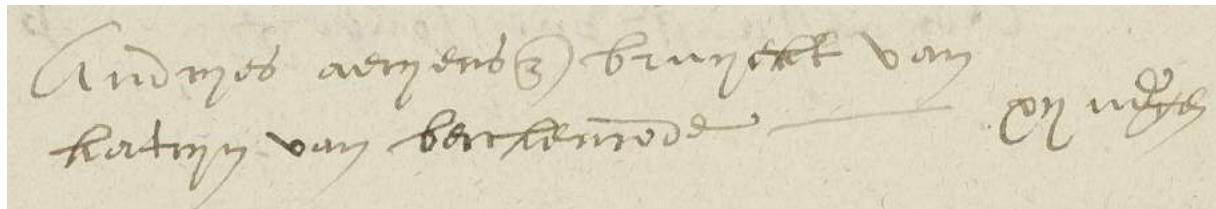 Andries aeriensz bruyckt van
katrijn van berckenrode — xij mergen